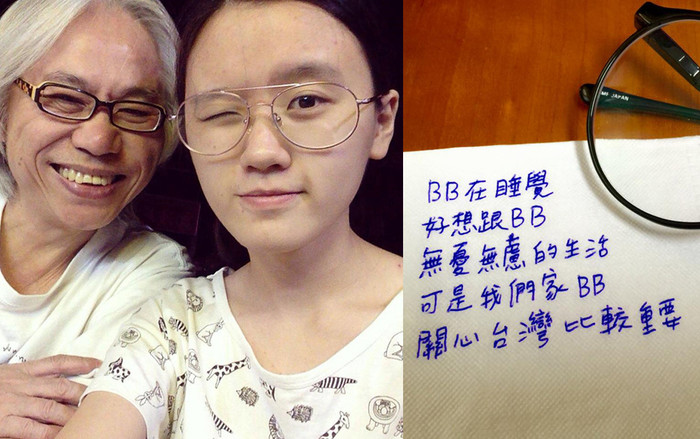 MADE IN JAPAN
BB在睡覺
好想跟BB
無憂無慮的生活
可是我們家BB
關心台灣比較重要